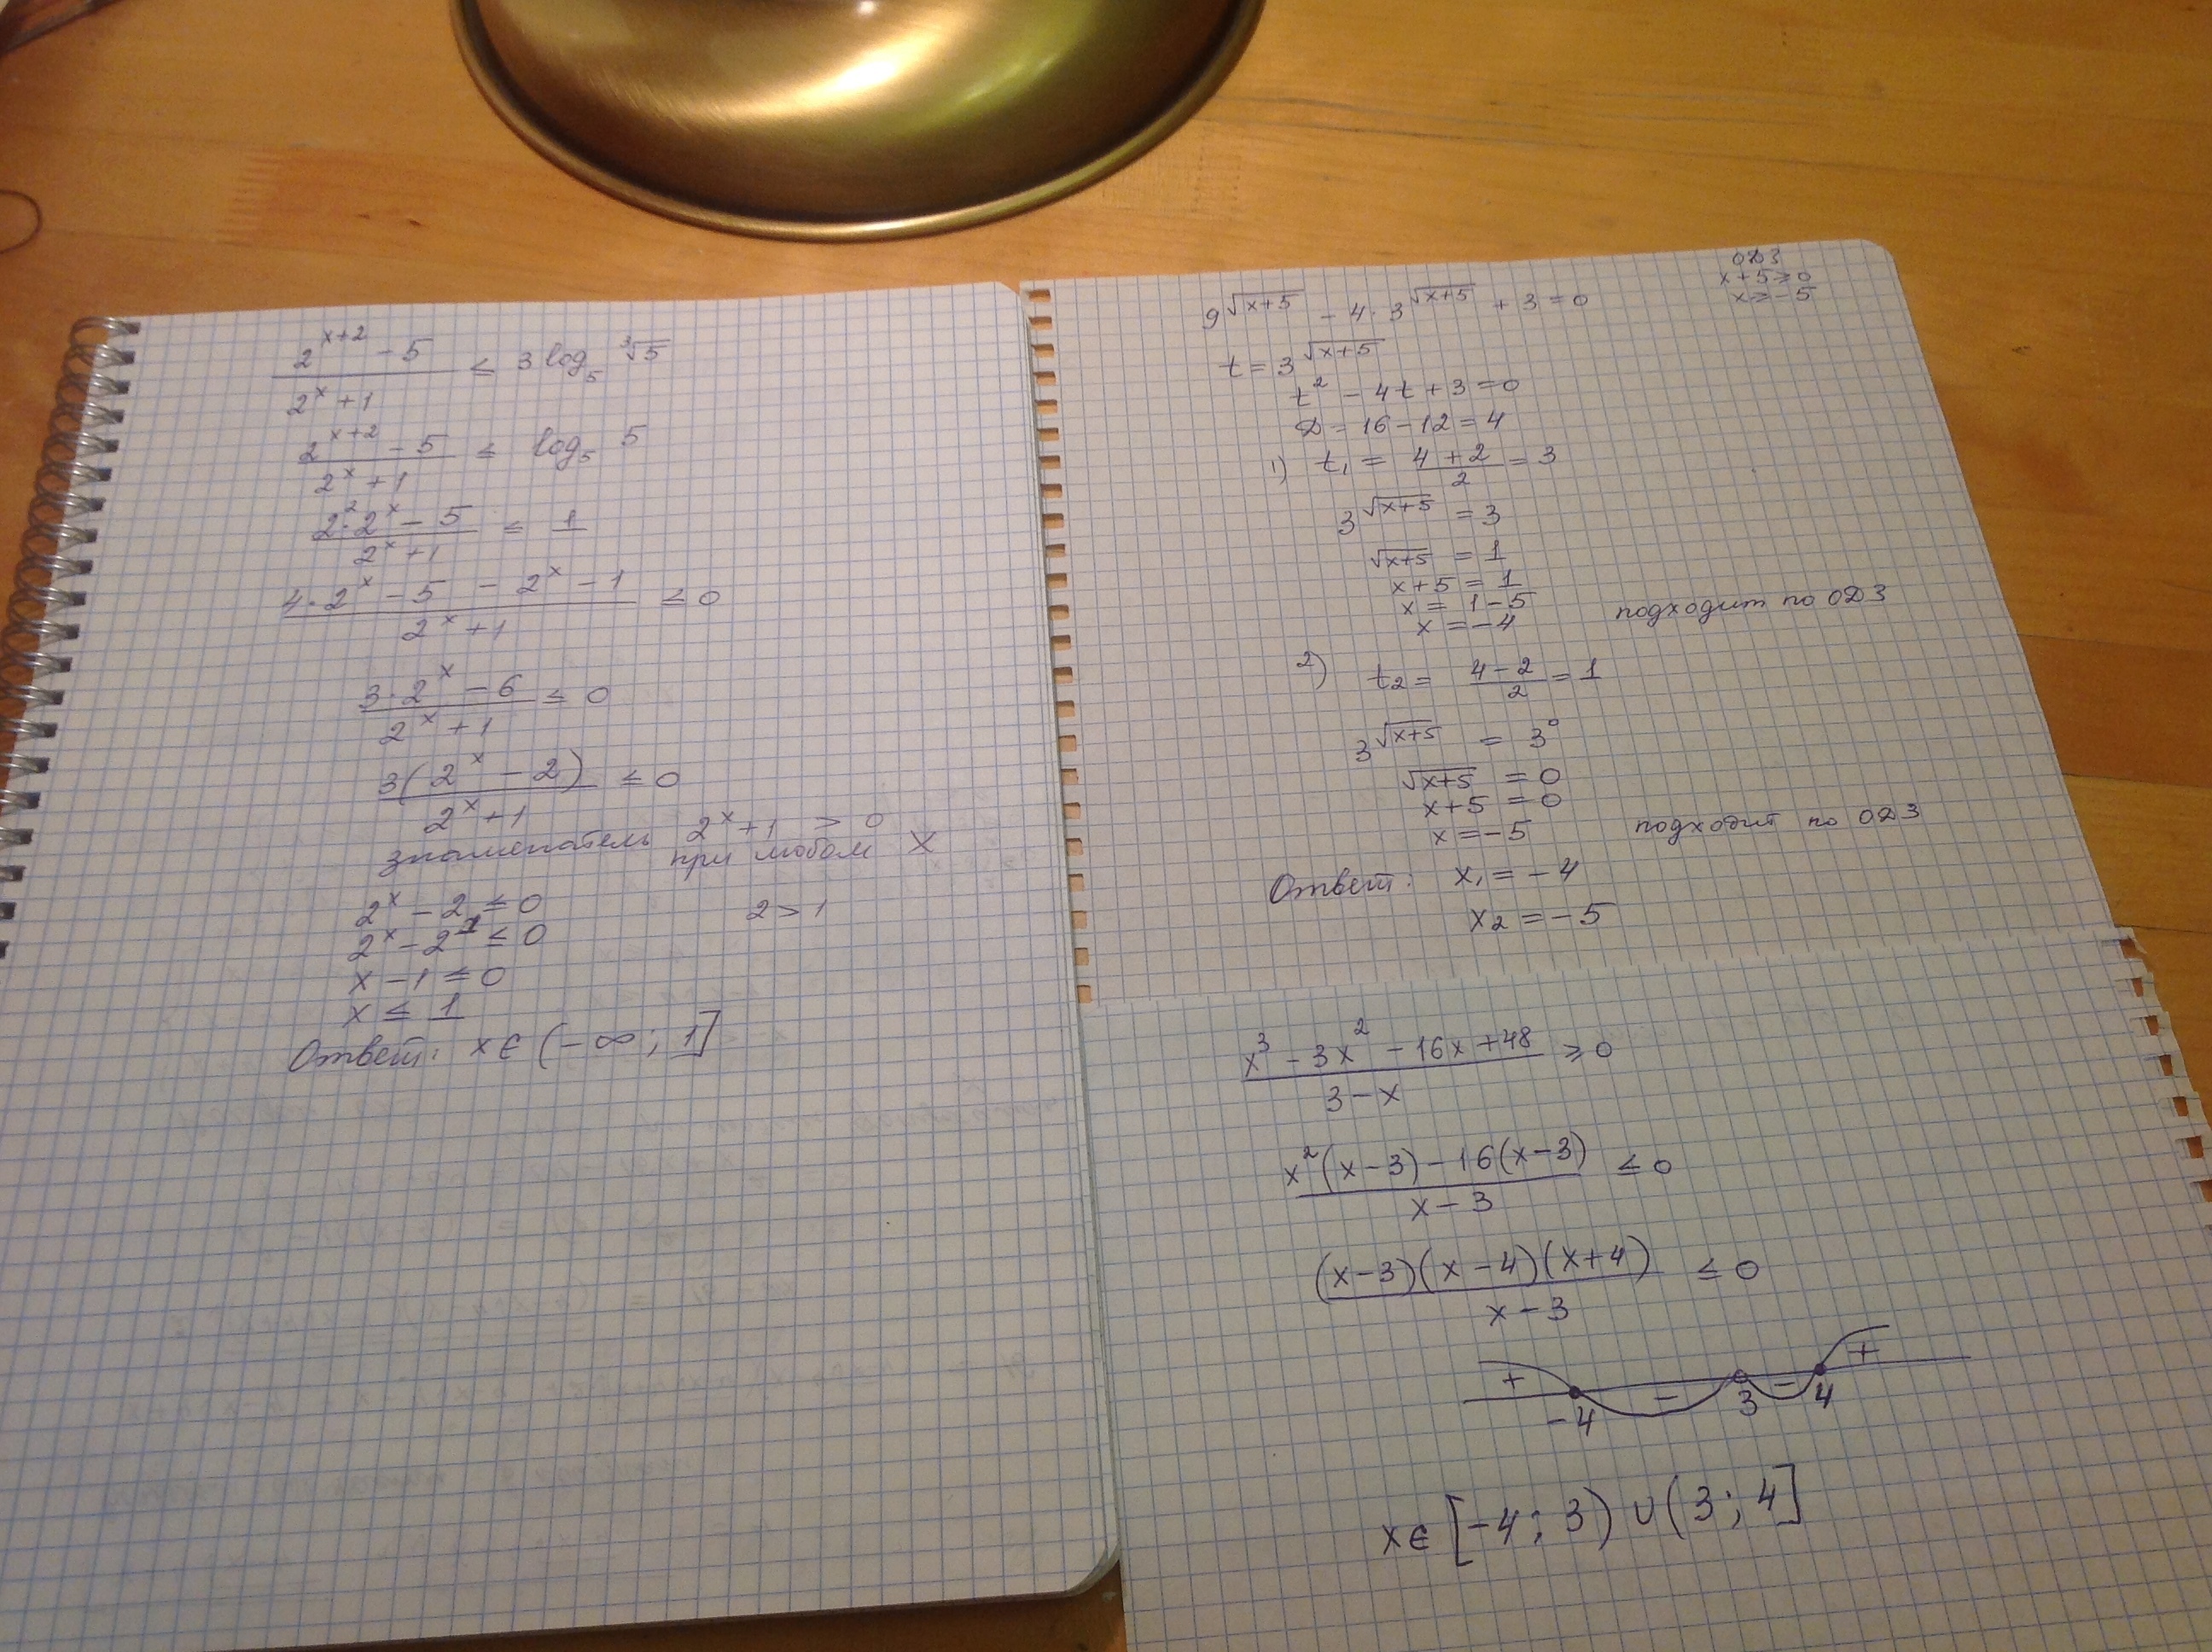 2^{x+2} - 5 / 2^x + 1 ≤ 3 log_5 ∛5
2^{x+2} - 5 / 2^x + 1 ≤ log_5 5
2^2·2^x - 5 / 2^x + 1 ≤ 1
4·2^x - 5 - 2^x - 1 / 2^x + 1 ≤ 0
3·2^x - 6 / 2^x + 1 ≤ 0
3(2^x - 2) / 2^x + 1 ≤ 0
знаменатель 2^x + 1 > 0
при любом X
2^x - 2 ≤ 0 2 > 1
2^x - 2^1 ≤ 0
x - 1 ≤ 0
x ≤ 1
Ответ: x ∈ (-∞; 1]
ОДЗ
x + 5 ≥ 0
x ≥ -5
9^{√x+5} - 4·3^{√x+5} + 3 = 0
t = 3^{√x+5}
t^2 - 4t + 3 = 0
D = 16 - 12 = 4
1) t_1 = 4 + 2 / 2 = 3
3^{√x+5} = 3
√x+5 = 1
x + 5 = 1
x = 1 - 5
x = -4 подходит по ОДЗ
2) t_2 = 4 - 2 / 2 = 1
3^{√x+5} = 3^0
√x+5 = 0
x + 5 = 0
x = -5 подходит по ОДЗ
Ответ: x_1 = -4
x_2 = -5
x^3 - 3x^2 - 16x + 48 / 3 - x ≥ 0
x^2(x-3) - 16(x-3) / x - 3 ≤ 0
(x-3)(x-4)(x+4) / x - 3 ≤ 0
+ - - +
-4 3 4
x ∈ [-4; 3) ∪ (3; 4]